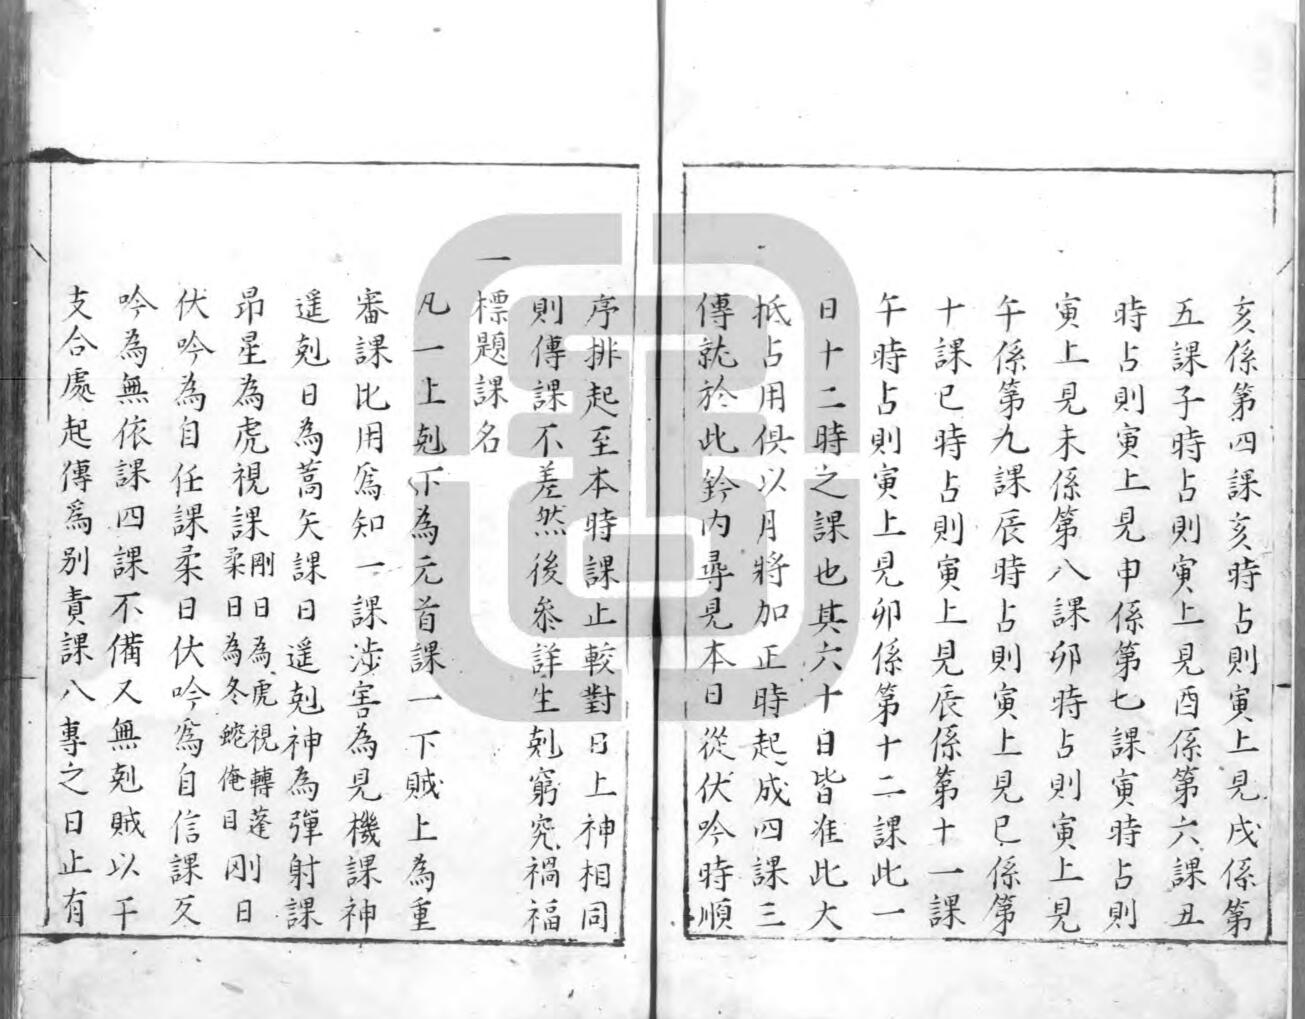 亥係第四課亥時占則寅上見戌係第
五課子時占則寅上見酉係第六課丑
時占則寅上見申係第七課寅時占則
寅上見未係第八課卯時占則寅上見
午係第九課辰時占則寅上見巳係第
十課巳時占則寅上見辰係第十一課
午時占則寅上見卯係第十二課此一
日十二時之課也其六十日皆准此大
抵占用俱以月將加正時起成四課三
傳就於此鈐内尋見本日從伏吟時順
序排起至本時課止較對日上神相同
則傳課不差然後叅詳生剋窮究禍福
一標題課名
凡一上剋下為元首課一下賊上為重
審課比用爲知一課涉害為見機課神
遥剋日為蒿矢課日遥剋神為彈射課
昂星為虎視課剛日為虎視轉蓬柔日為冬蛇俺目剛日
伏吟為自任課柔日伏吟爲自信課反
吟為無依課四課不備又無剋賊以干
支合處起傳爲别責課八專之日止有